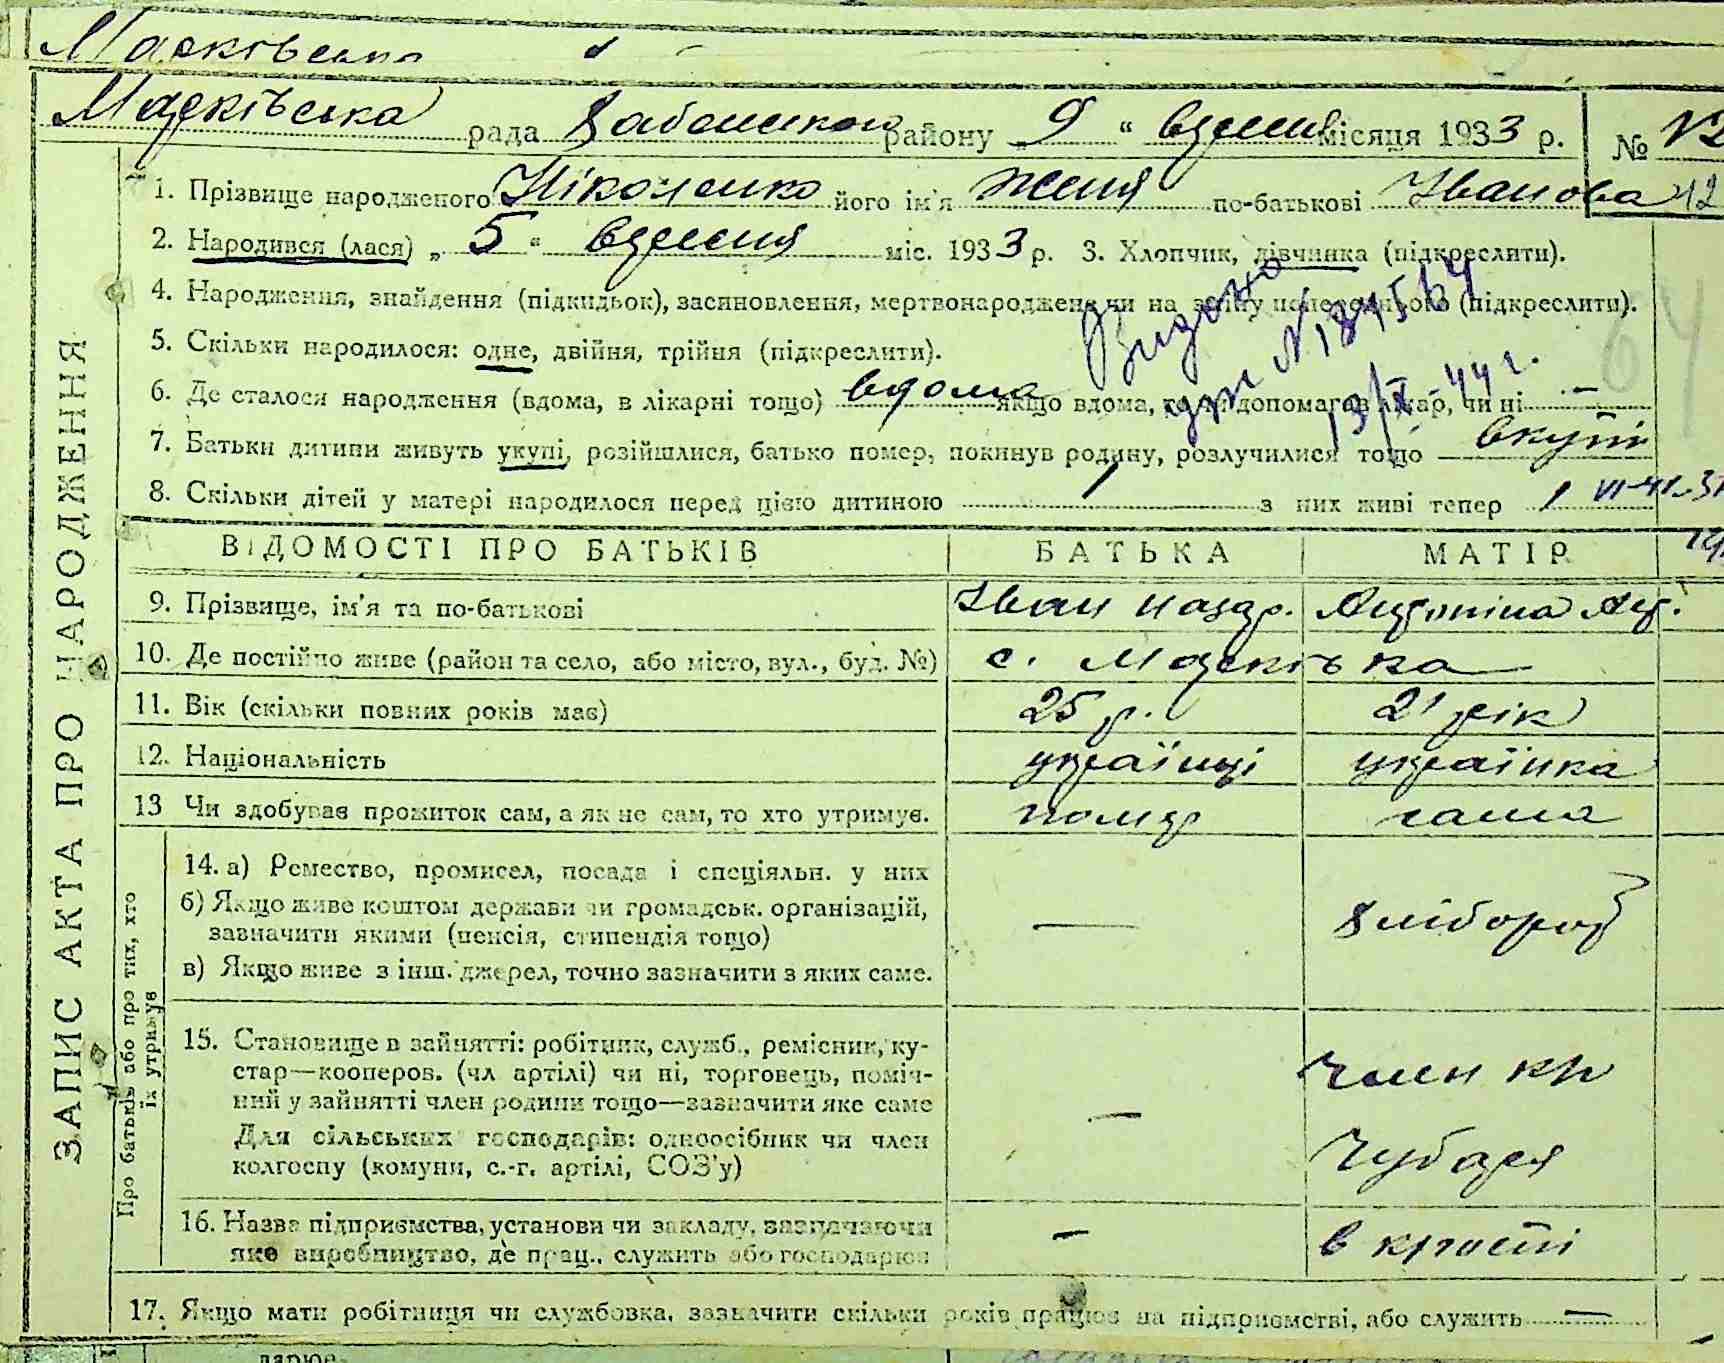 Марківська
Марківська рада району 9 " вересня місяця 1933 р. № 12
1. Прізвище народженого Ніколенко його ім'я Женя по-батькові Іванова 12
2. Народився (лася) „ 5 " вересня міс. 1933 р. 3. Хлопчик, дівчинка (підкреслити).
4. Народження, знайдення (підкидьок), засиновлення, мертвонароджене чи на зміну попереднього (підкреслити).
5. Скільки народилося: одне, двійня, трійня (підкреслити).
Видано
N 187564
13/X-44 г.
64
6. Де сталося народження (вдома, в лікарні тощо) вдома якщо вдома, то чи допомагав лікар, чи ні —
7. Батьки дитини живуть укупі, розійшлися, батько помер, покинув родину, розлучилися тощо вкупі
8. Скільки дітей у матері народилося перед цією дитиною 1 з них живі тепер 1
ВІДОМОСТІ ПРО БАТЬКІВ БАТЬКА МАТІР
9. Прізвище, ім'я та по-батькові Іван Назар. Антоніна
10. Де постійно живе (район та село, або місто, вул., буд. №) с. Марківка
11. Вік (скільки повних років має) 25 р. 21 рік
12. Національність українці українка
13 Чи здобуває прожиток сам, а як не сам, то хто утримує. помер сама
14. а) Ремество, промисел, посада і спеціяльн. у них
б) Якщо живе коштом держави чи громадськ. організацій,
зазначити якими (пенсія, стипендія тощо) — хлібороб
в) Якщо живе з інш. джерел, точно зазначити з яких саме.
15. Становище в зайнятті: робітник, служб., ремісник, ку-
стар—кооперов. (чл артілі) чи ні, торговець, поміч- член кг
ний у зайнятті член родини тощо—зазначити яке саме —
Для сільських господарів: одноосібник чи член Чубаря
колгоспу (комуни, с.-г. артілі, СОЗ'у)
16. Назва підприємства, установи чи закладу, зазначаючи — в
яке виробництво, де прац., служить або господарює
17. Якщо мати робітниця чи службовка, зазначити скільки років працює на підприємстві, або служить —
ЗАПИС АКТА ПРО НАРОДЖЕННЯ
Про батьків або про тих, хто
їх утримує
дарює.